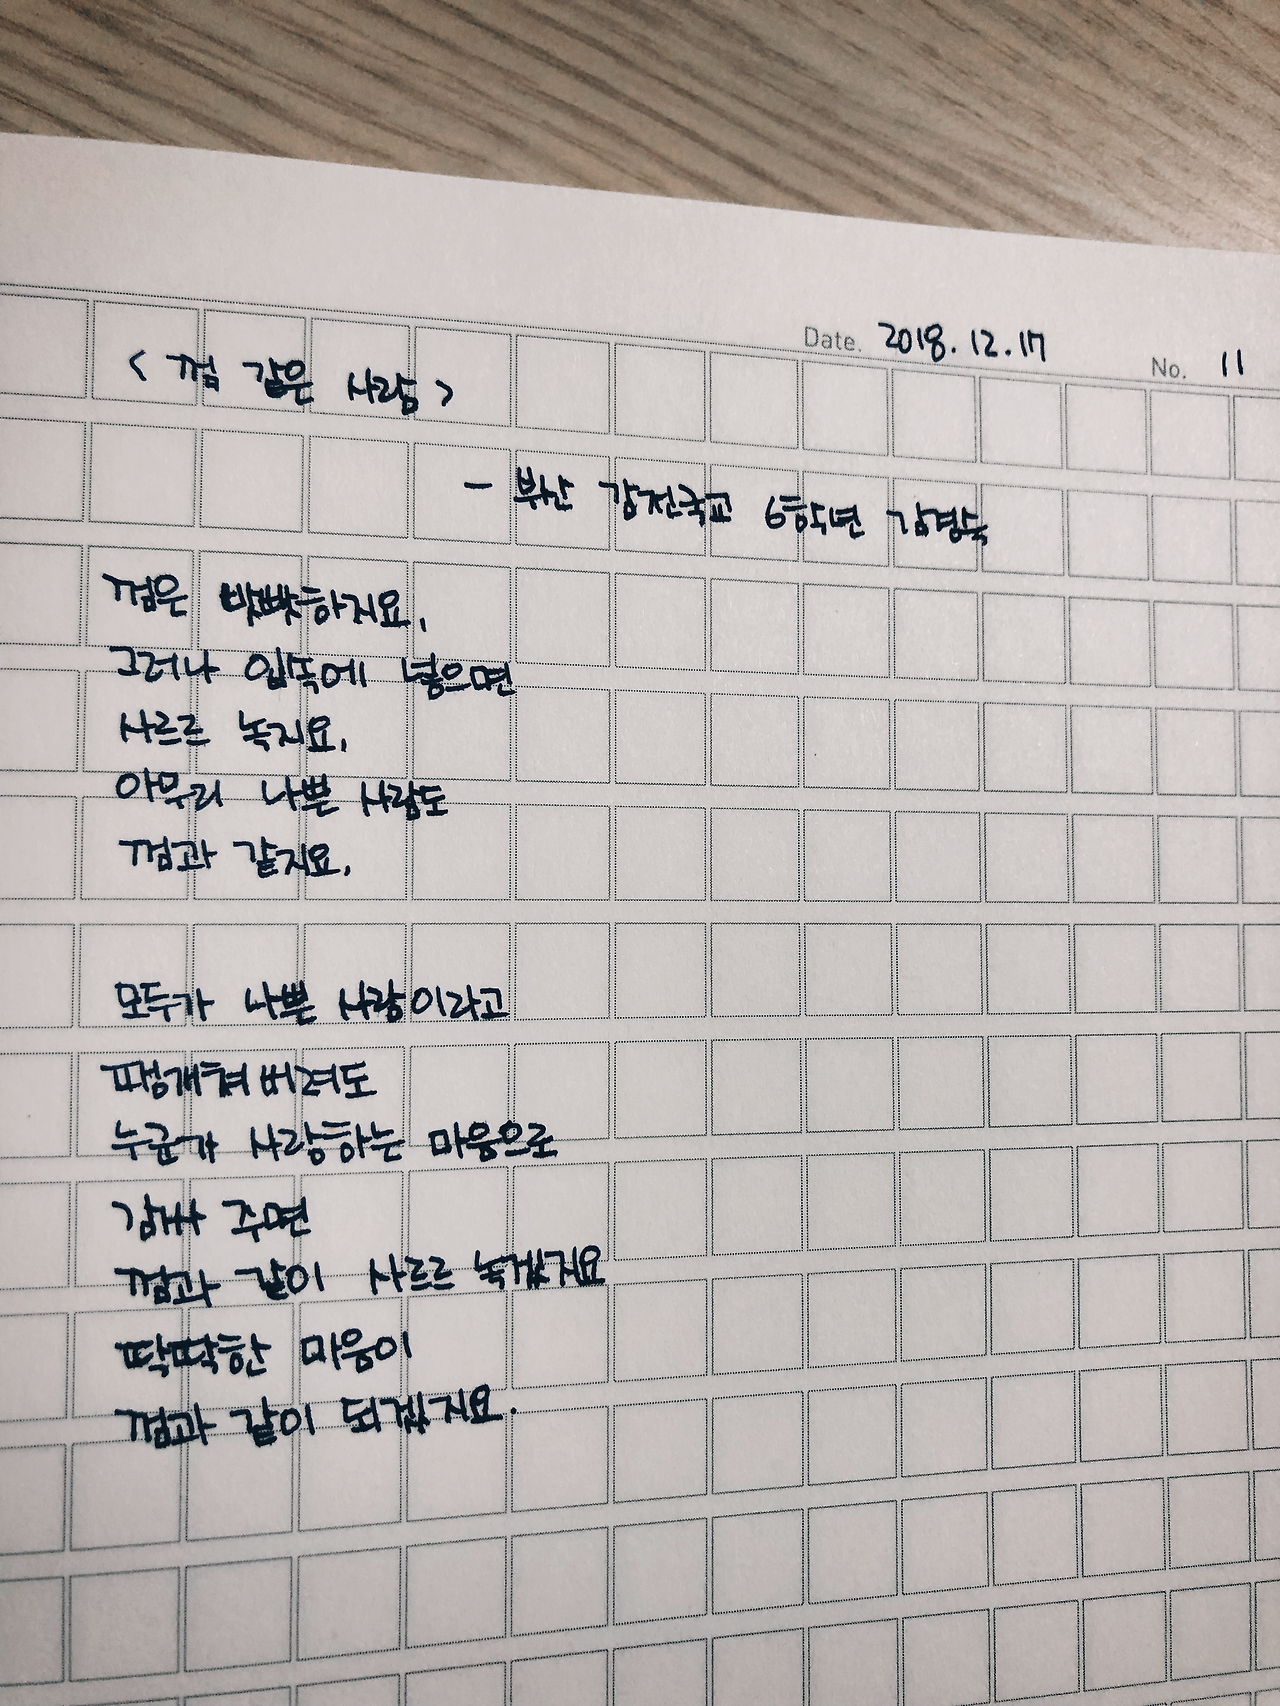 Date. 2018.12.17
No. 11
< 껌 같은 사람 >
- 부산 감전국교 6학년 김경숙
껌은 빳빳하지요.
그러나 입속에 넣으면
사르르 녹지요.
아무리 나쁜 사람도
껌과 같지요.
모두가 나쁜 사람이라고
팽개쳐 버려도
누군가 사랑하는 마음으로
감싸 주면
껌과 같이 사르르 녹겠지요
딱딱한 마음이
껌과 같이 되겠지요.